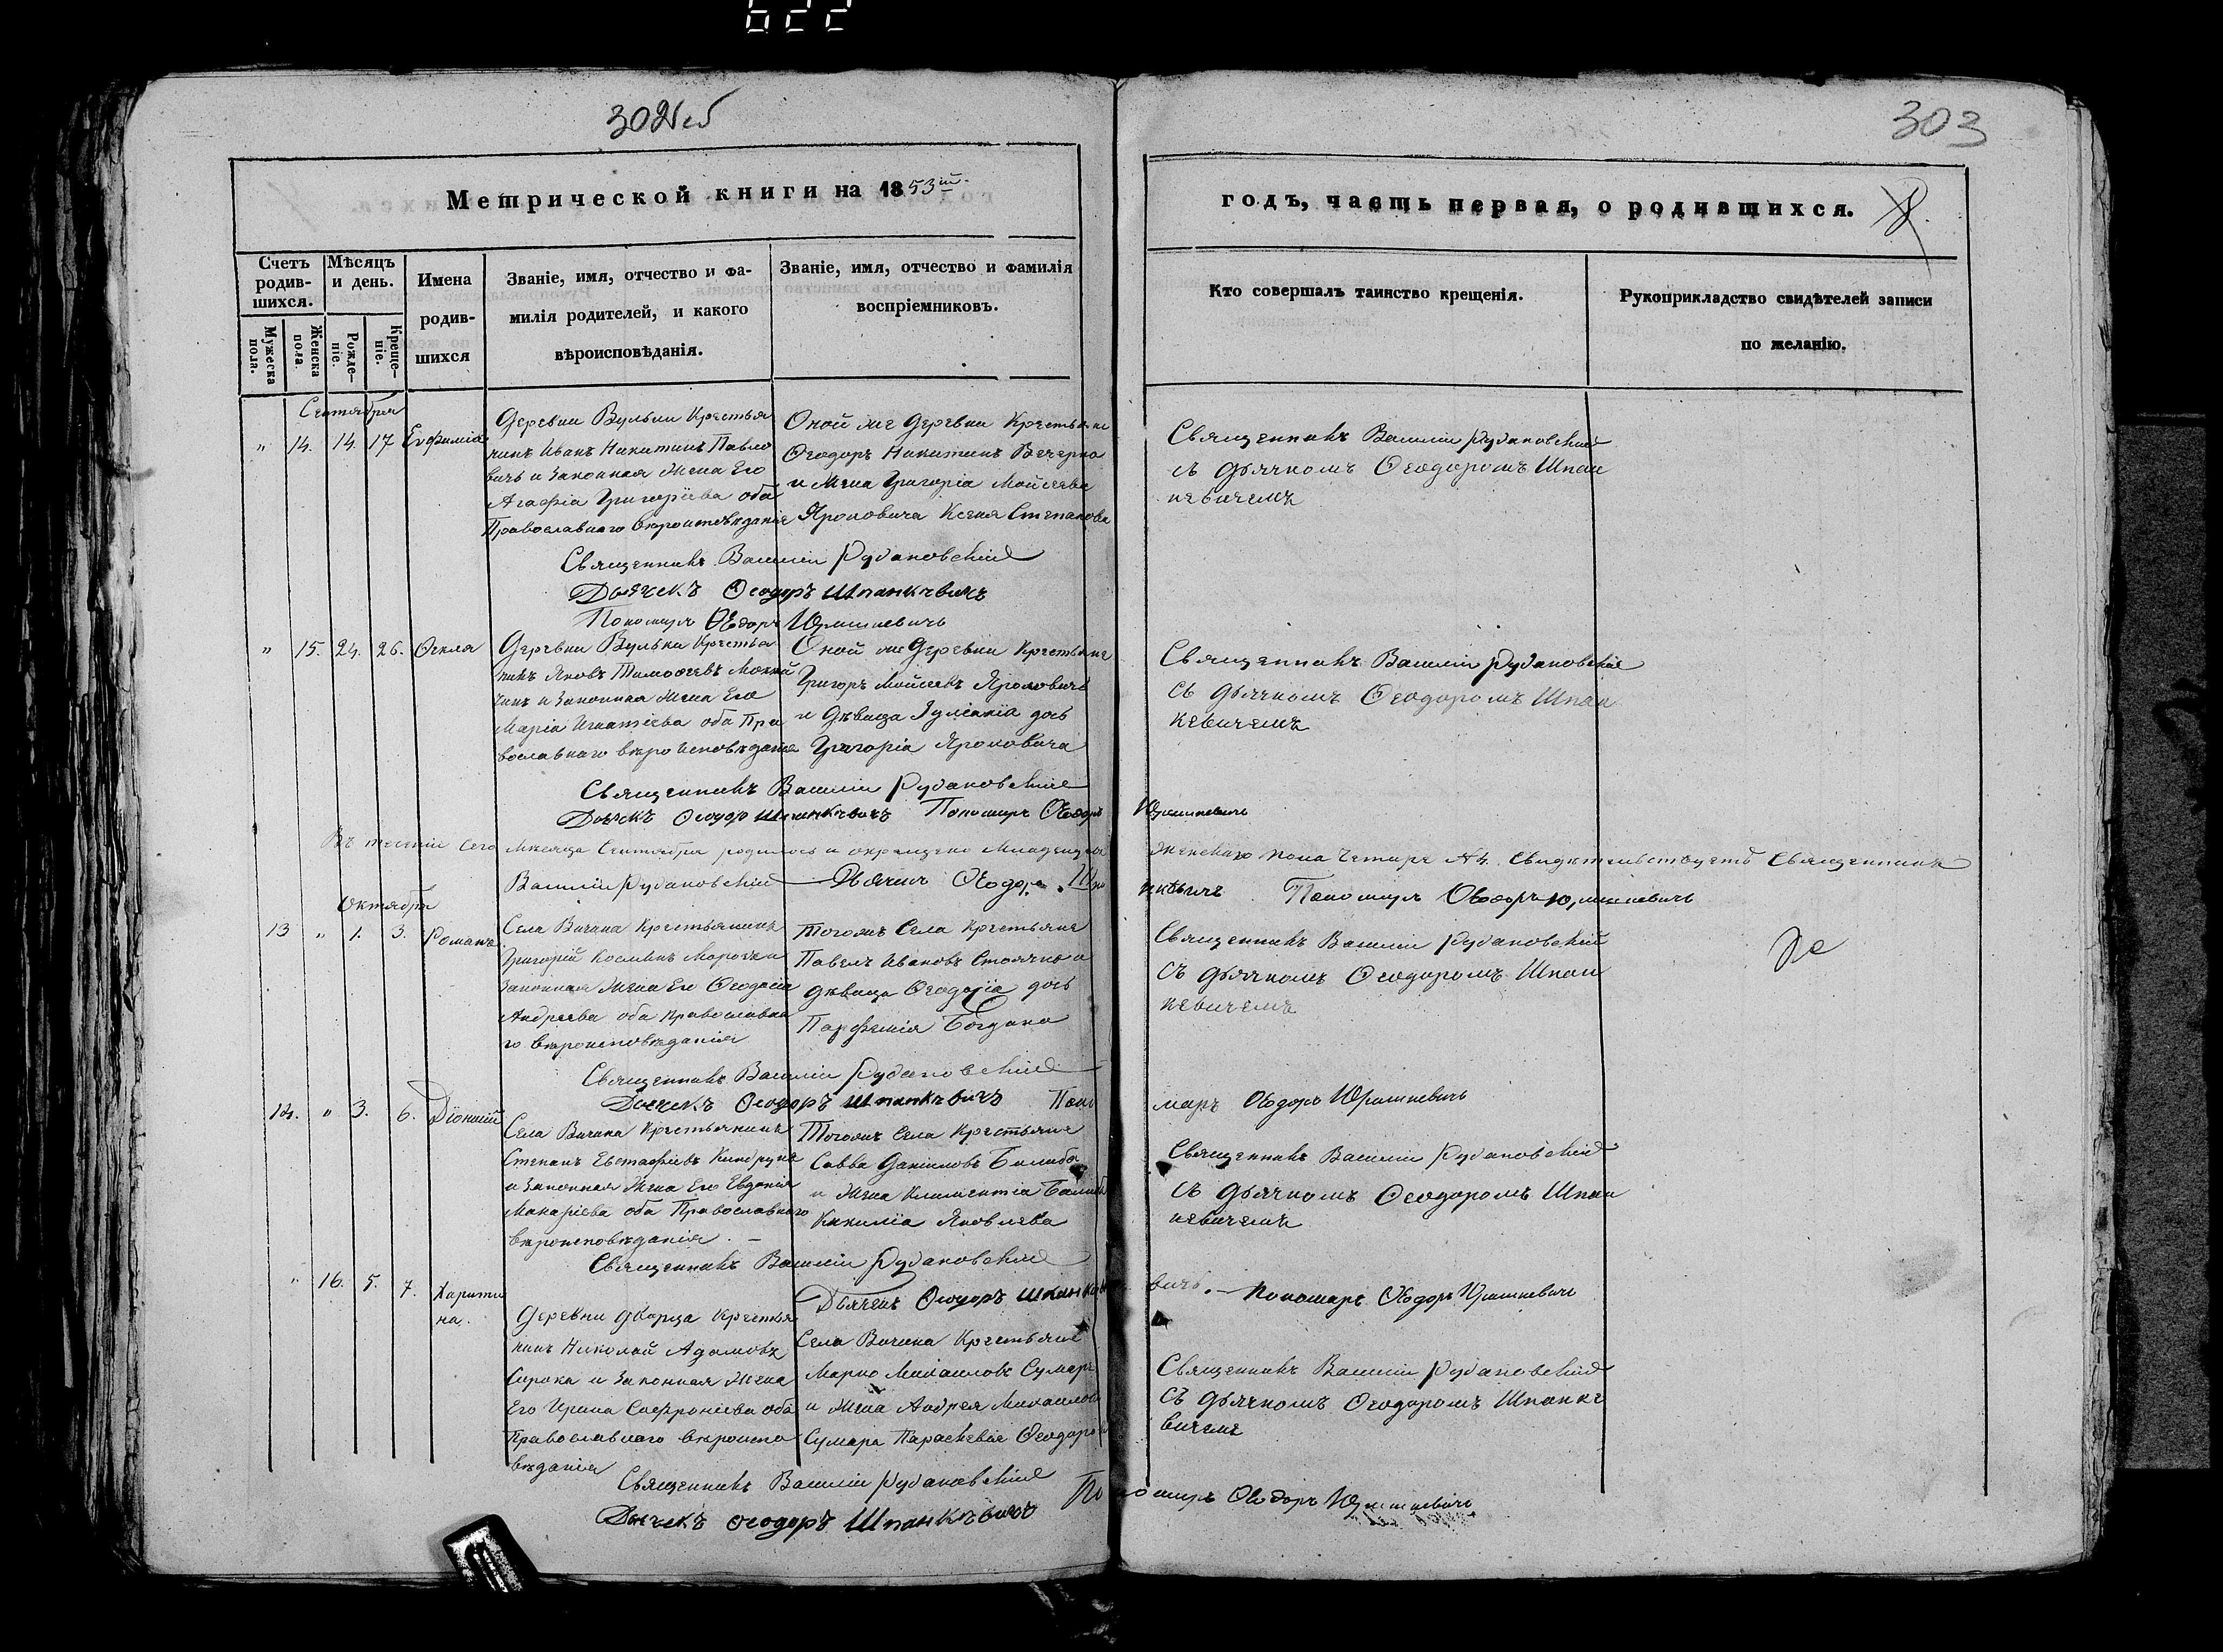 622
302 об
303
Метрической книги на 1853ій
годъ, часть первая, о родившихся.
Счетъ родив-
шихся.
Мѣсяцъ
и день.
Имена
родив-
шихся
Званіе, имя, отчество и фа-
милія родителей, и какого
вѣроисповѣданія.
Званіе, имя, отчество и фамилія
воспріемниковъ.
Кто совершалъ таинство крещенія.
Рукоприкладство свидѣтелей записи
по желанію.
Мужеска
пола.
Женска
пола.
Рожде-
ніе.
Креще-
ніе.
Сентября
" 14. 14. 17 Евфимія
Деревни Вульки Крестья
нинъ Иванъ Никитинъ Павло
вичъ и Законная Жена Его
Агафія Григоріева оба
Православнаго вѣроисповѣданія
Оной же Деревни Крестьяне
Ѳеодоръ Никитинъ
и Жена Григорія Мойсеева
Яроповича Ксенія Степанова
Священникъ Василій Рудановскій
съ Дьячкомъ Ѳеодоромъ Шпан
кевичемъ
Священникъ Василій Рудановскій
Дьячекъ Ѳеодоръ Шпанкѣвичъ
Пономарь Ѳеодоръ Юрашкевичъ
" 15. 24. 26. Ѳекла
Деревни Вульки Крестья
нинъ Яковъ Тимоѳеевъ
и Законная Жена Его
Марія Игнатіева оба Пра
вославнаго вѣроисповѣданія
Оной же Деревни Крестьяне
Григоръ Мойсеевъ Яроповичъ
и Дѣвица Іуліанія дочь
Григорія Яроповича
Священникъ Василій Рудановскій
съ Дьячкомъ Ѳеодоромъ Шпан
кевичемъ
Священникъ Василій Рудановскій
Дьячекъ Ѳеодоръ Шпанкѣвичъ Пономарь Ѳеодоръ Юрашкевичъ
Въ теченіи сего Мѣсяца Сентября родилось и окрещено Младенцевъ женскаго пола Четыре №4. Свидѣтельствуетъ Священникъ
Василій Рудановскій Дьячекъ Ѳеодоръ Пономарь Ѳеодоръ Юрашкевичъ
Октября
13 " 1. 3. Романъ
Села Вичина Крестьянинъ
Григорій Косминъ Морочка
Законная Жена Его Ѳеодосія
Андреева оба Православна
го вѣроисповѣданія
Тогожъ Села Крестьяне
Павелъ Ивановъ Столчко и
дѣвица Ѳеодорія дочь
Парфенія Богдана
Священникъ Василій Рудановскій
Съ Дьячкомъ Ѳеодоромъ Шпан
кевичемъ
Священникъ Василій Рудановскій
Дьячекъ Ѳеодоръ Шпанкѣвичъ Поно
марь Ѳеодоръ Юрашкевичъ
14. " 3. 6. Діонисій
Села Вичина Крестьянинъ
Степанъ Евстафіевъ Киндрука
и Законная Жена Его Евдокія
Макаріева оба Православнаго
вѣроисповѣданія. —
Тогожъ Села Крестьяне
Савва Даніиловъ
и Жена Климентія
Киликія Яковлева
Священникъ Василій Рудановскій
Съ Дьячкомъ Ѳеодоромъ Шпан
кевичемъ
Священникъ Василій Рудановскій
Дьячекъ Ѳеодоръ Шпанкевичъ. — Пономарь Ѳеодоръ Юрашкевичъ
" 16. 5. 7. Харити
на.
Деревни Дворца Крестья
нинъ Николай Адамовъ
Сорока и Законная Жена
Его Ирина Софроніева оба
Православнаго вѣроиспо
вѣданія
Села Вичина Крестьяне
Марко Михаиловъ Сумаръ
и Жена Андрея Михаилова
Сумара Параскевія Ѳеодорова
Священникъ Василій Рудановскій
Съ Дьячкомъ Ѳеодоромъ Шпанке
вичемъ
Священникъ Василій Рудановскій
Дьячекъ Ѳеодоръ Шпанкѣвичъ
Пономарь Ѳеодоръ Юрашкевичъ